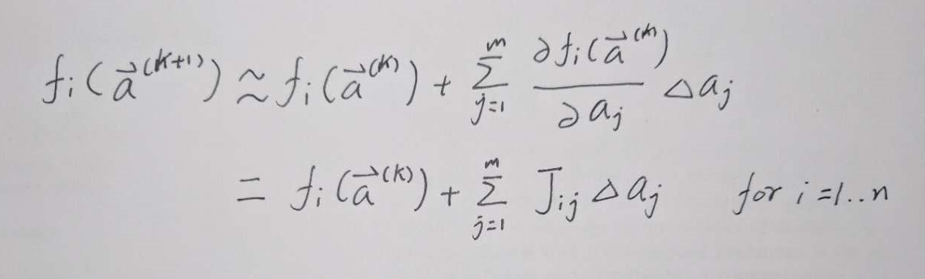 f_i(\vec{a}^{(k+1)}) ≈ f_i(\vec{a}^{(k)}) + \sum_{j=1}^{m} \frac{∂f_i(\vec{a}^{(k)})}{∂a_j} Δa_j
= f_i(\vec{a}^{(k)}) + \sum_{j=1}^{m} J_{ij} Δa_j for i=1..n